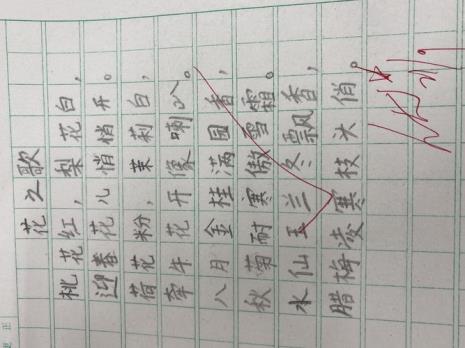 花之歌
桃花红，梨花白，
迎春花儿悄悄开。
荷花粉，茉莉白，
牵牛花开像喇叭。
八月金桂满园香，
秋菊耐寒傲雪霜。
水仙玉兰冬飘香，
腊梅凌寒枝头俏。